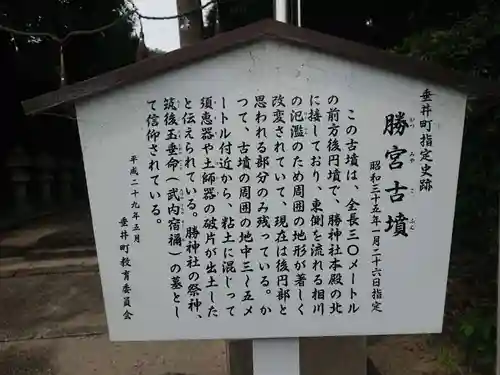 垂井町指定史跡
勝宮古墳
かつ みや こ ふん
昭和三十五年一月二十六日指定
この古墳は、全長三〇メートル
の前方後円墳で、勝神社本殿の北
に接しており、東側を流れる相川
の氾濫のため周囲の地形が著しく
改変されていて、現在は後円部と
思われる部分のみ残っている。か
つて、古墳の周囲の地中三〜五メ
ートル付近から、粘土に混じって
須恵器や土師器の破片が出土した
と伝えられている。勝神社の祭神、
筑後玉垂命(武内宿禰)の墓とし
て信仰されている。
平成二十九年五月
垂井町教育委員会